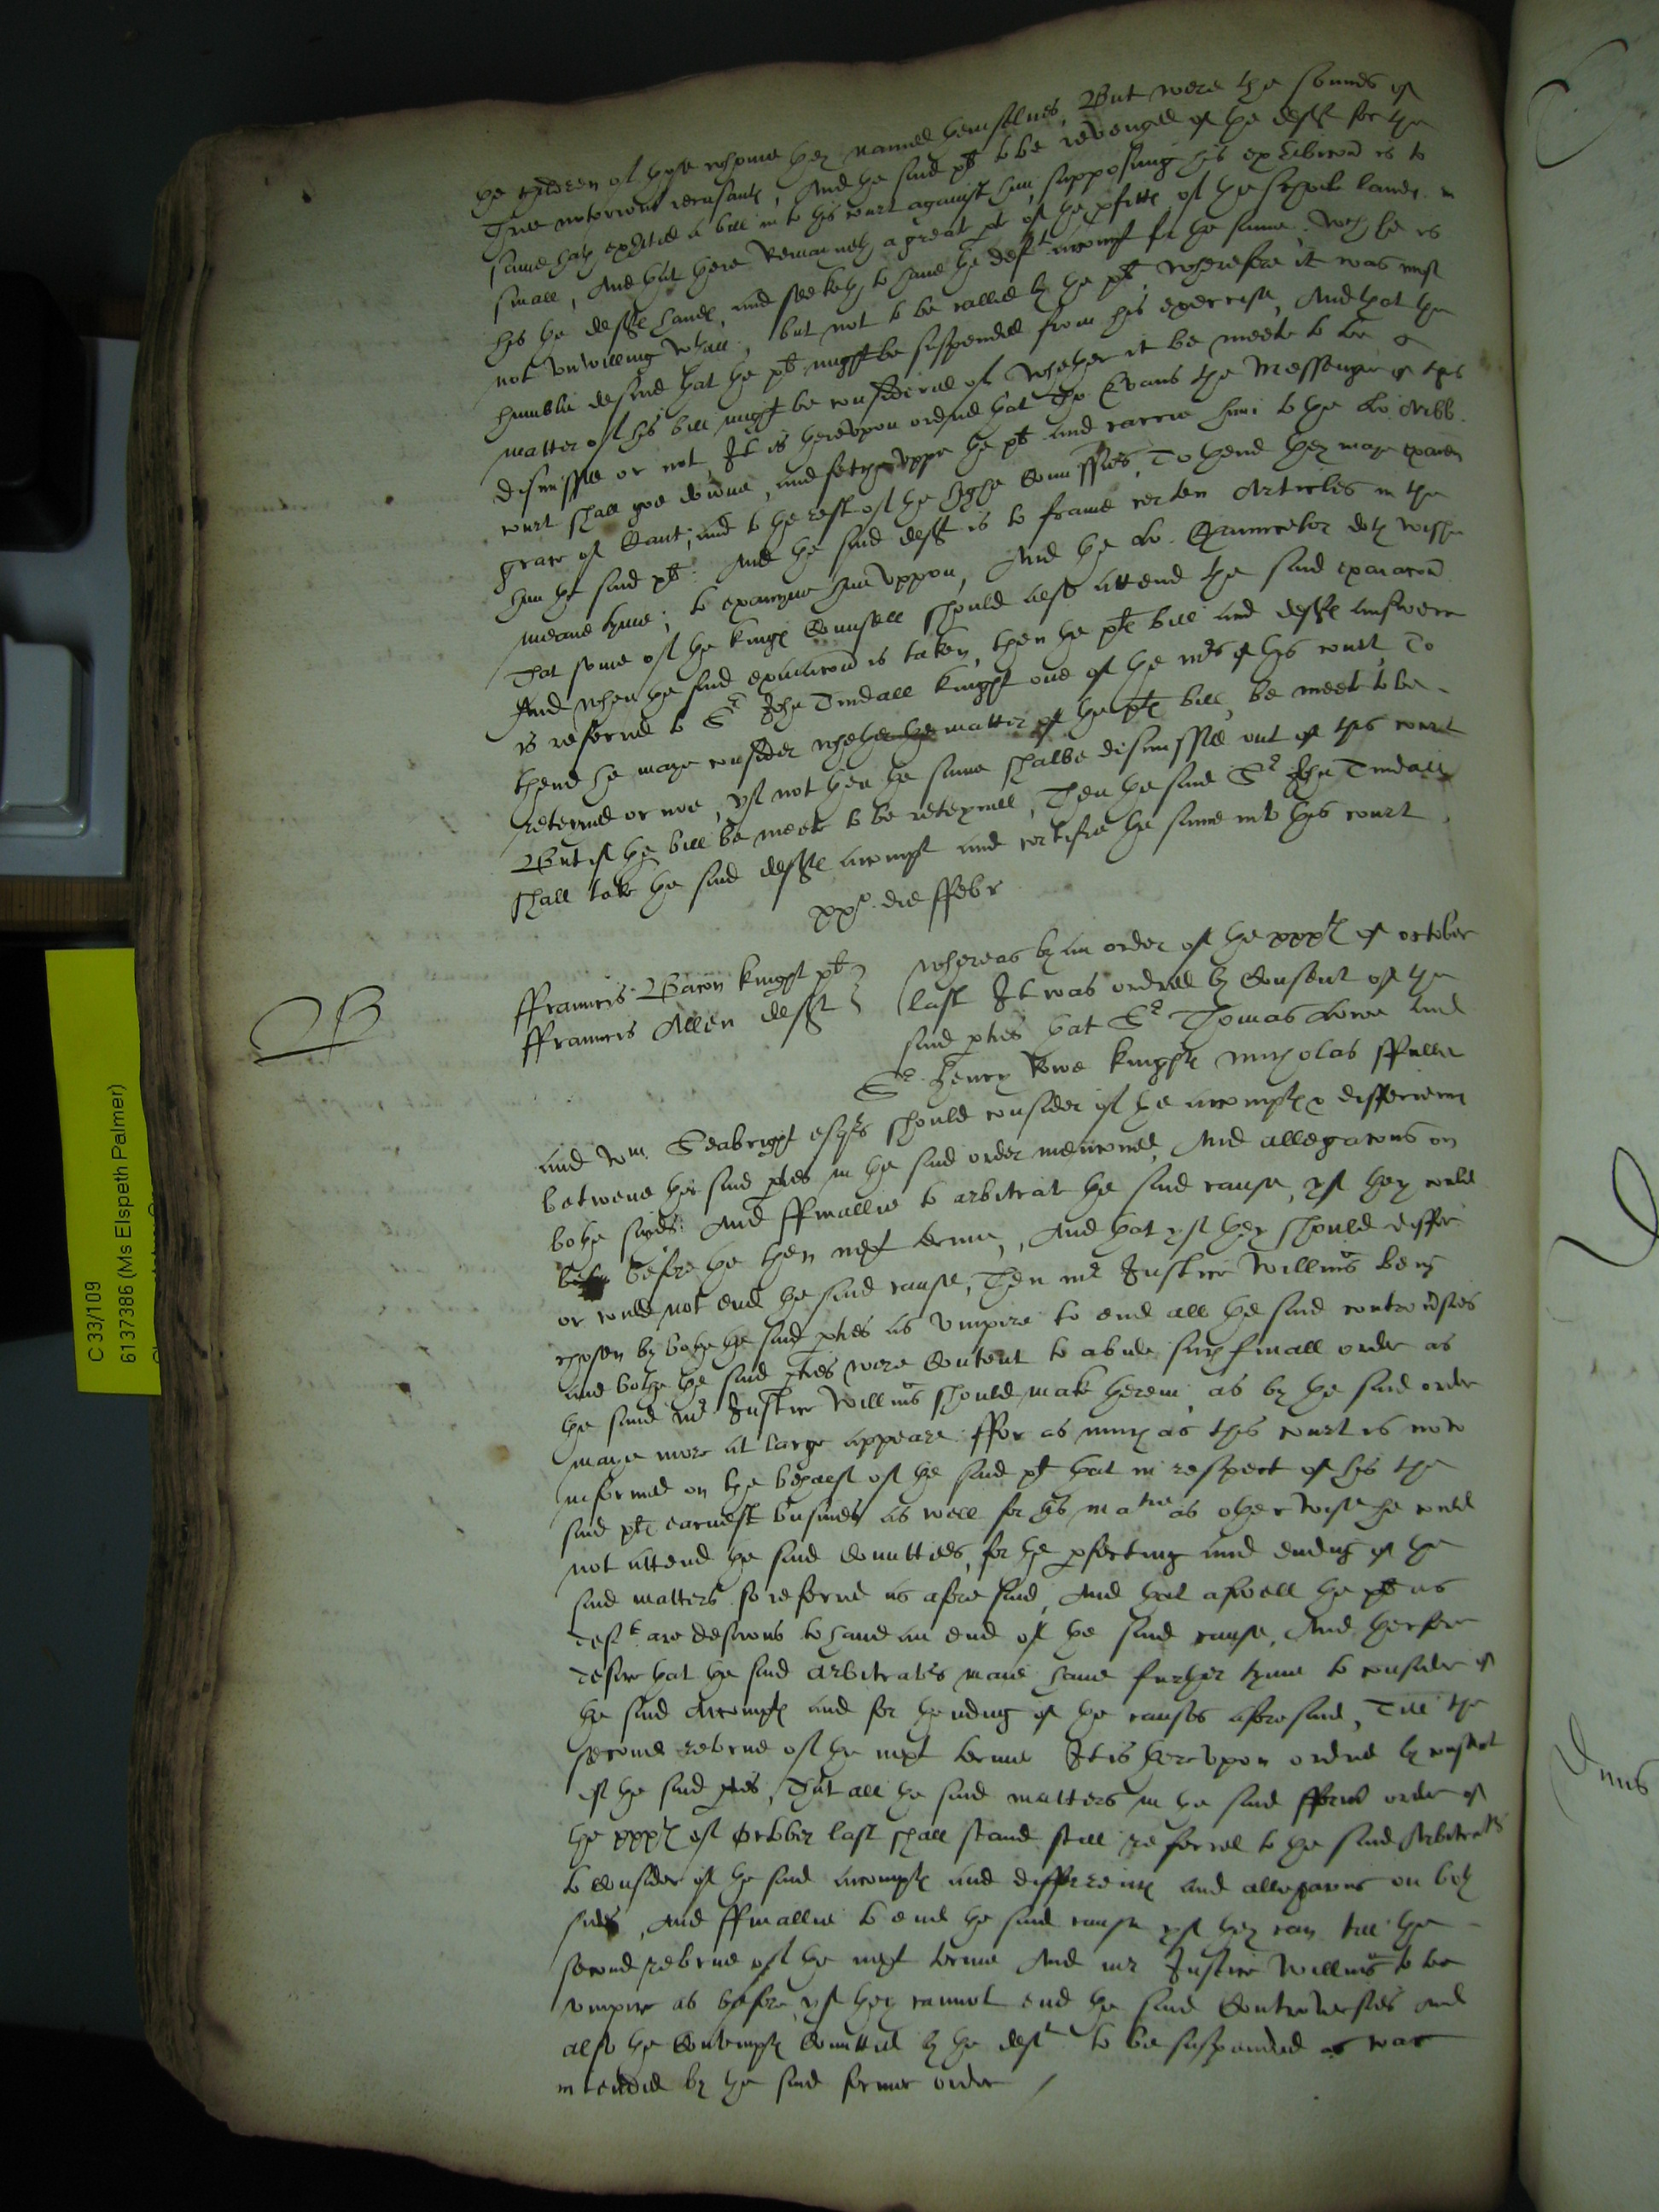 the children of those whome they named themselves, But were the sonnes of
Three notorious recusantes, And the said plt to be revenged of the defft for the
same hath exhited a bill into this court against him, supposing his exhibicon is to
small, And that there Remayneth a great pt of the pfitts of the schole landes in
this the deffts handes, and seeketh to have the deft accompt for the same, wch he is
not unwilling whall, but not to be called by the plt, wherefore it was most
humblie desired that the plt might be suspended from his exercise, And that the
matter of his bill might be considered of whether it be meete to be
dismissed or not, It is hereupon ordred that Tho Evans the Messenger of this
court shall goe downe, and fetch uppe the plt and carrie him to the Lo. Archb.
grace of Cant; and to the rest of the highe Comissrs, To thend they maye examen
him the said plt. And the said defft is to frame certen Articles in the
meane tyme, to examyne him uppon, And the Lo. Chauncelor doth wishe
That some of the kinges Counsell should also attend the said examacon
And when the said examacon is taken, then the pltes bill and deffts answere
is referred to Sr John Tindall knight one of the mrs of this court, To
thend he maye consider whether the matter of the pltes bill, be meete to be
reteyned or noe, yf not then the same shalbe dismissed out of this court
But if the bill be meete to be reteyned, Then the said Sr John Tindall
shall take the said deffts accompt and certifie the same into this court
xxo die ffebr
ffrauncis Bacon knight plt
ffrauncis Allen defft
whereas by an order of the xxxth of october
last It was ordred by Consent of the
said pties that Sr Thomas Lowe and
Sr Henry Rowe knightes nicholas ffuller
and Wm Seabright esqrs should consider of the accomptes & differences
betweene the said pties in the said order menconed, And allegacons on
bothe sides: And ffinallie to arbitrat the said cause, yf they could
before the then next terme, And that yf they should differ
or could not end the said cause, Then mr Justice Willms being
chosen by bothe the said pties as umpire to end all the said controvsies
and bothe the said pties were Content to abide such finall order as
the said mr Justice Willms should make therein, as by the said order
maye more at large appeare. ffor as much as this court is now
informed on the behalf of the said plt that in respect of his the
said pltes earnest busines as well for his matie as otherwise he could
not attend the said Comittees, for the pfecting and ending of the
said matters so referred as afore said, And that aswell the plt as
deft are desirous to have an end of the said cause, And therfore
desire that the said arbitrators maie have further tyme to consider of
the said Accomptes and for thending of the causes aforesaid, Till the
second retorne of the next terme It is hereupon ordred by consent
of the said pties, That all the said matters in the said former order of
the xxxth of October last shall stand still referred to the said Arbitrators
to consider of the said accomptes and differences and allegacons on both
sides, And ffinallie to end the said cause yf they can till the
second retorne of the next terme And mr Justice Willms to be
umpire as before, yf they cannot end the said Controversies and
also the Contempt Comitted by the deft to be suspended as was
intended by the said former order
C 33/109
6137386 (Ms Elspeth Palmer)